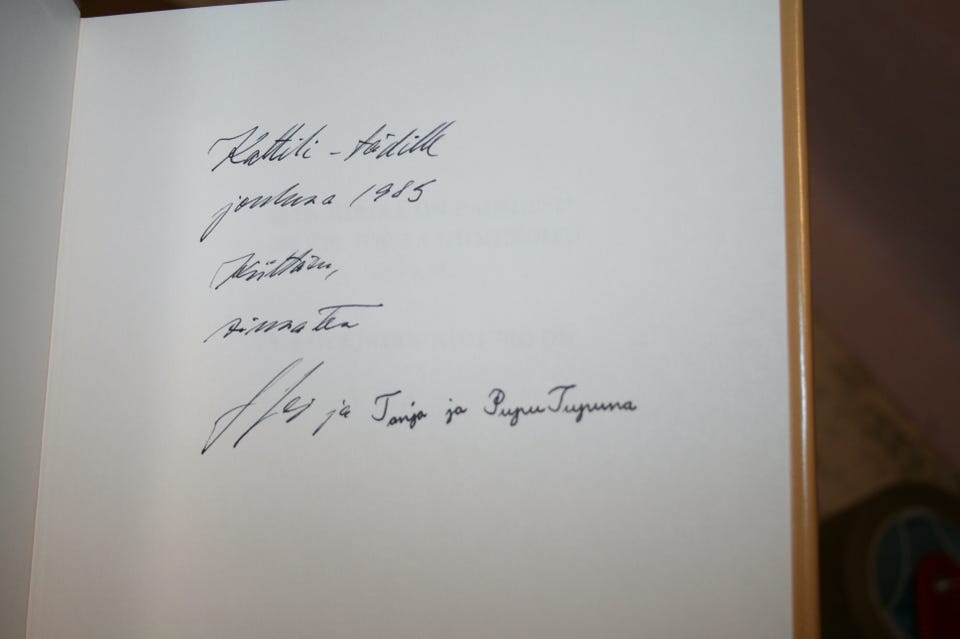 Kattili-tädille
jouluna 1985
Kiittäen,
ja Tanja ja Pupu Tupuna